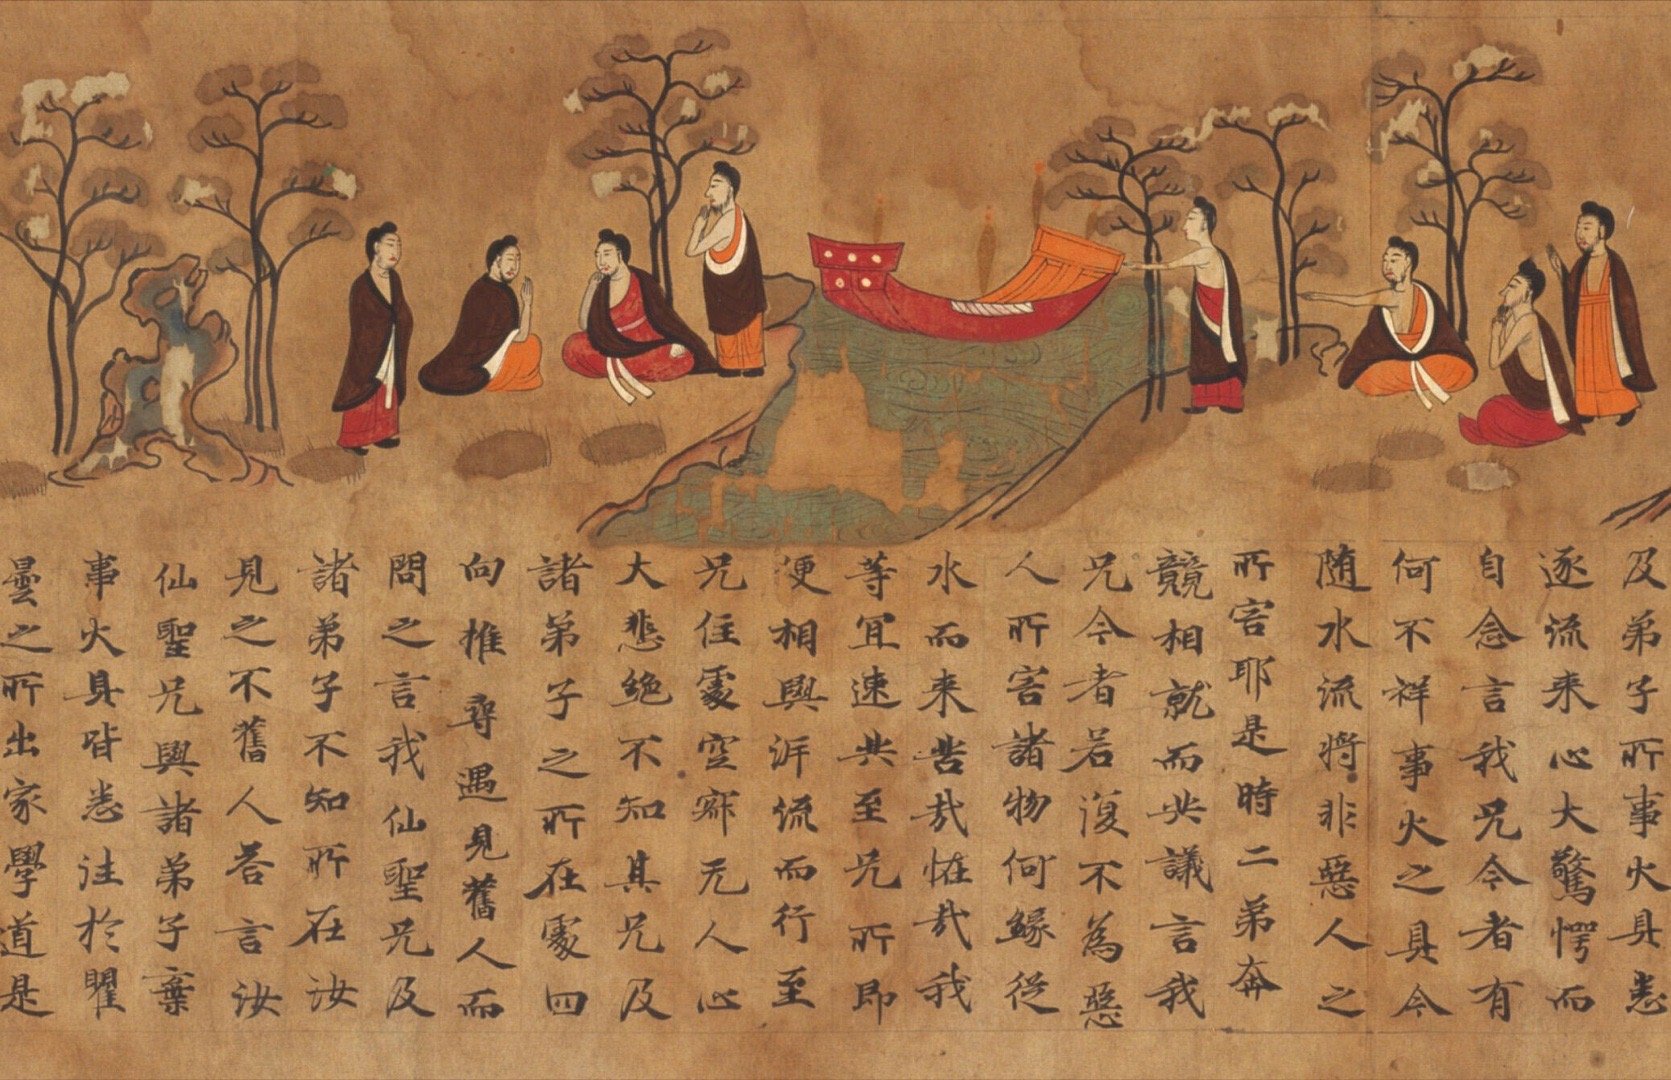 及弟子所事火具悉
逐流来心大驚愕而
自念言我兄今者有
何不祥事火之具今
随水流将非惡人之
所害耶是時二弟奔
競相就而共議言我
兄今者若復不為惡
人所害諸物何緣從
水而来苦哉怪哉我
等宜速共至兄所即
便相與泝流而行至
兄住處空寂无人心
大悲絶不知其兄及
諸弟子之所在處四
向推尋遇見舊人而
問之言我仙聖兄及
諸弟子不知所在汝
見之不舊人荅言汝
仙聖兄與諸弟子棄
事火具皆悉往於瞿
曇之所出家學道是